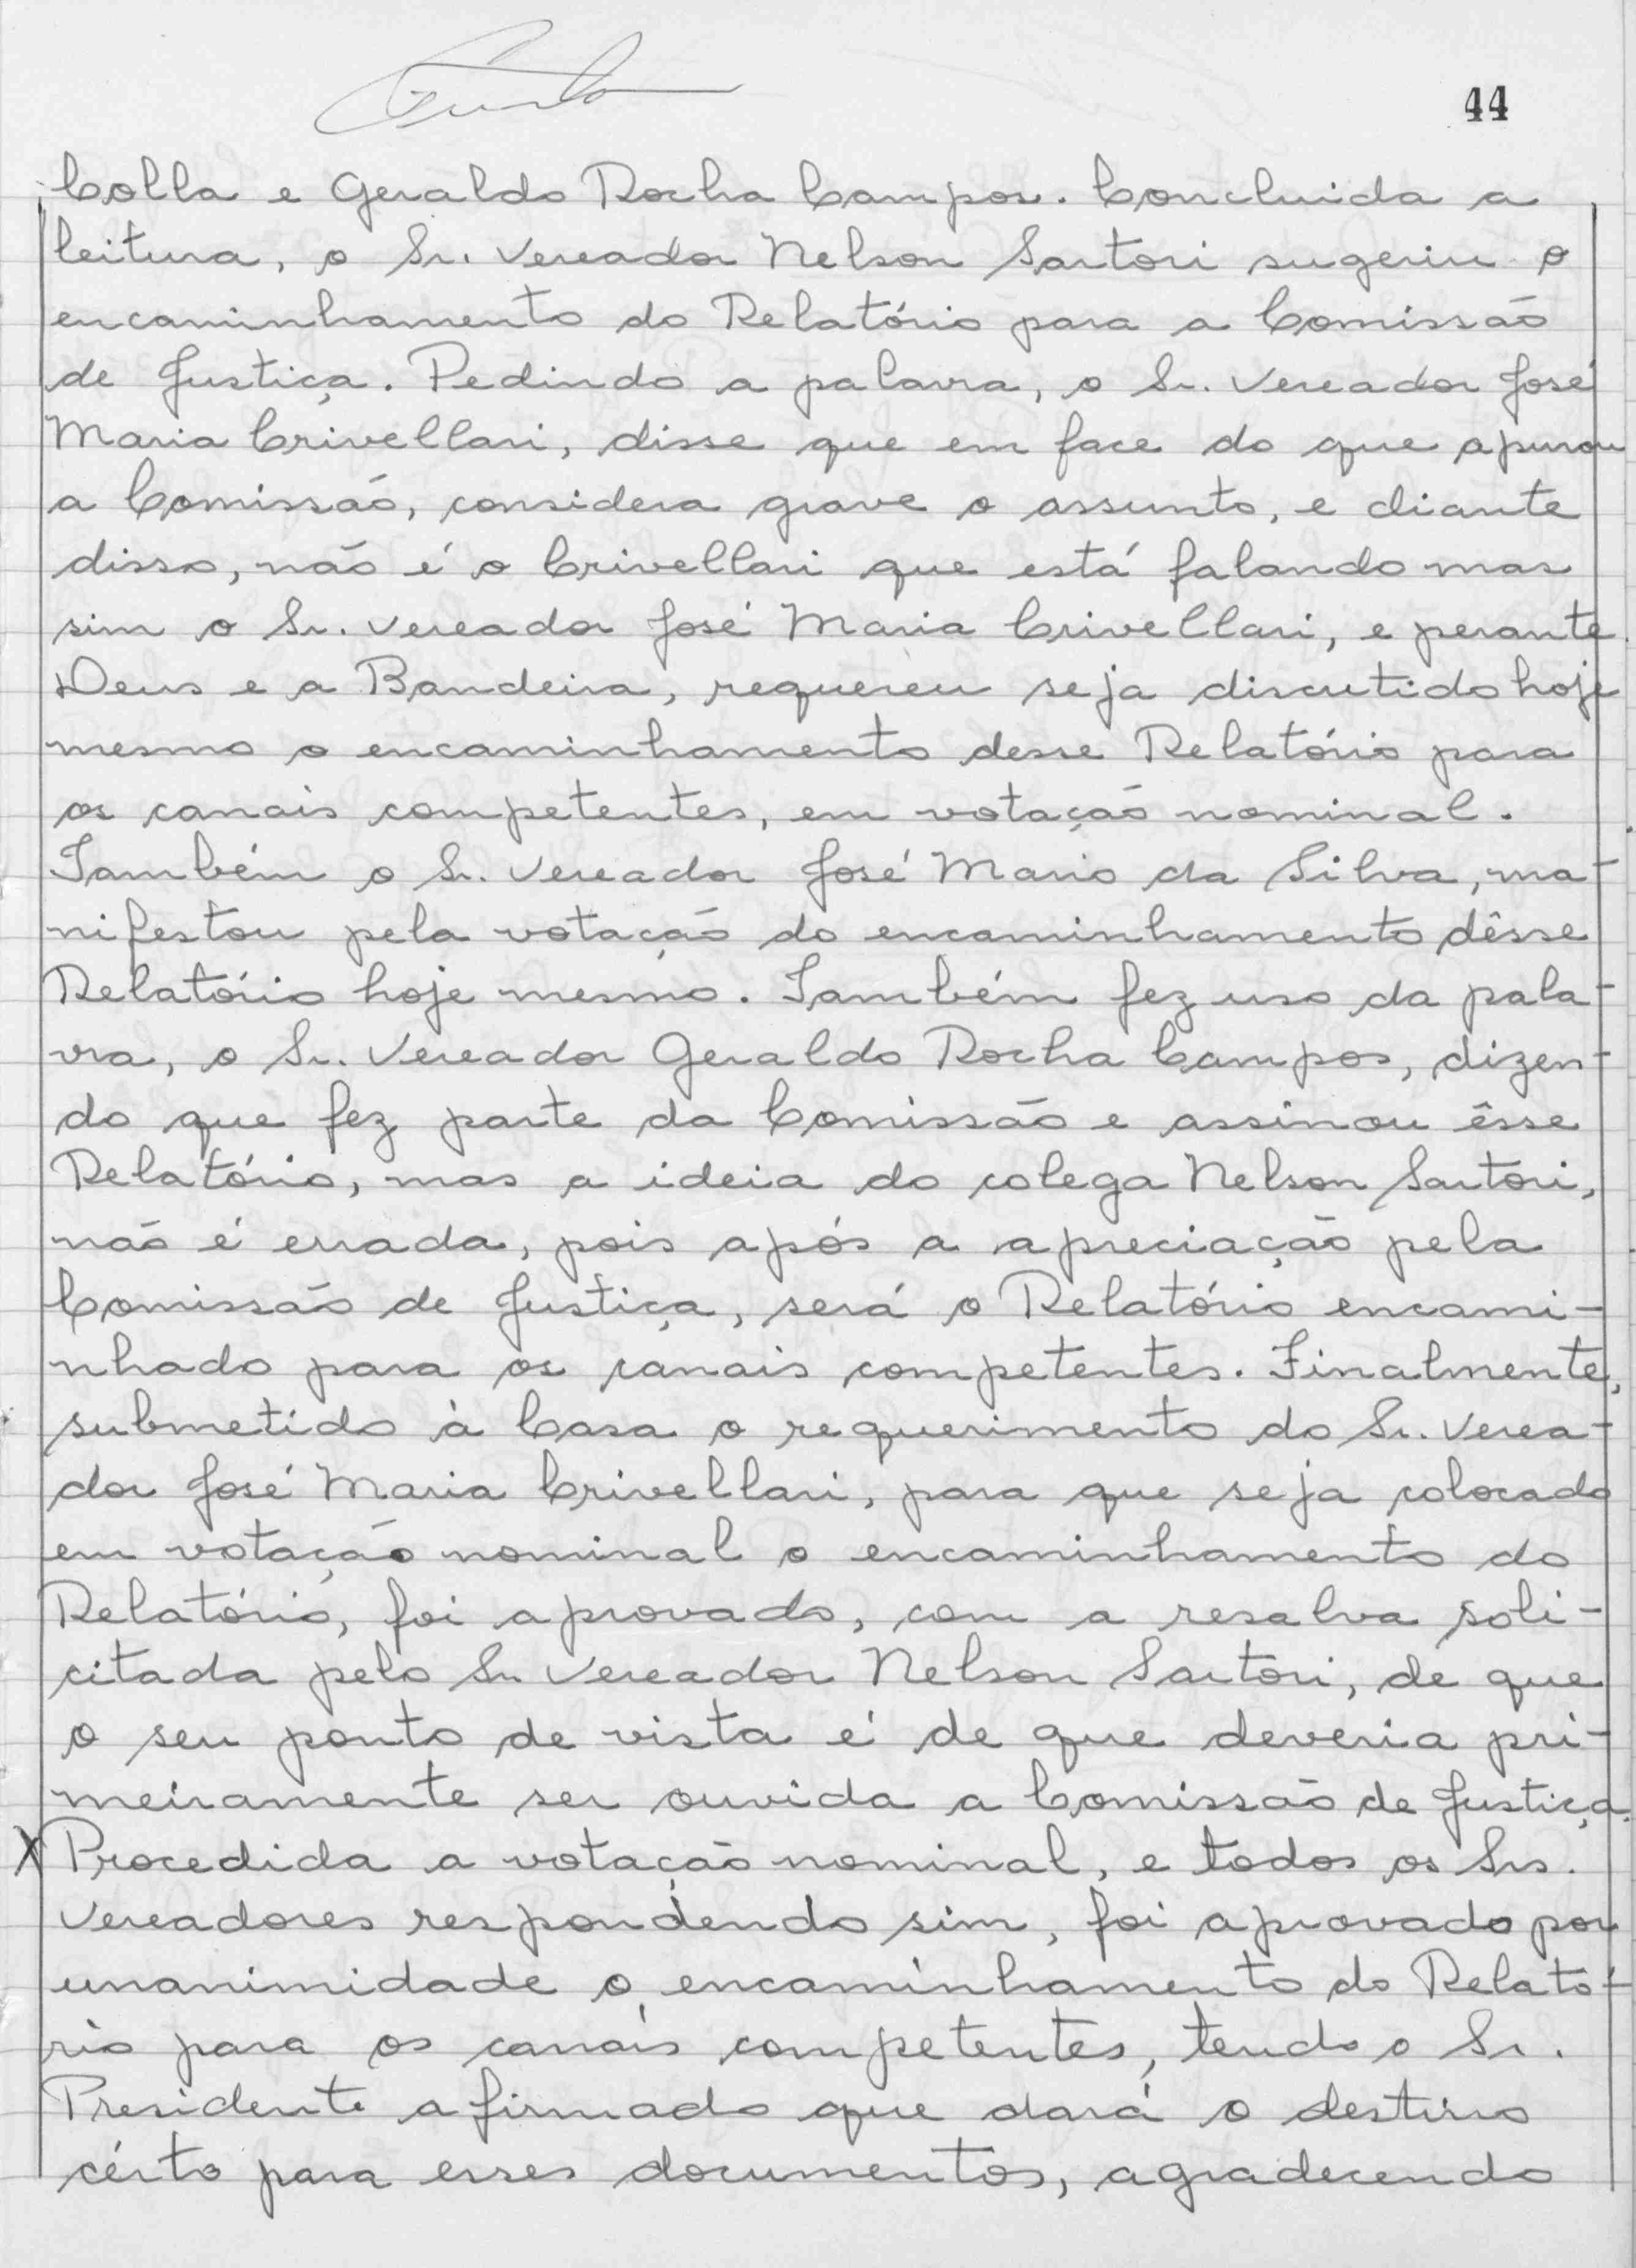 44
Colla e Geraldo Rocha Campos. Concluida a
leitura, o Sr. Vereador Nelson Sartori sugeriu o
encaminhamento do Relatório para a Comissão
de Justiça. Pedindo a palavra, o Sr. Vereador José
Maria Crivellari, disse que em face do que apurou
a Comissão, considera grave o assunto, e diante
disso, não é o Crivellari que está falando mas
sim o Sr. Vereador José Maria Crivellari, e perante
Deus e a Bandeira, requereu seja discutido hoje
mesmo o encaminhamento desse Relatório para
os canais competentes, em votação nominal.
Também o Sr. Vereador José Mario da Silva, ma-
nifestou pela votação do encaminhamento dêsse
Relatório hoje mesmo. Também fez uso da pala-
vra, o Sr. Vereador Geraldo Rocha Campos, dizen-
do que fez parte da Comissão e assinou êsse
Relatório, mas a ideia do colega Nelson Sartori,
não é errada, pois após a apreciação pela
Comissão de Justiça, será o Relatório encami-
nhado para os canais competentes. Finalmente,
submetido à Casa o requerimento do Sr. Verea-
dor José Maria Crivellari, para que seja colocado
em votação nominal o encaminhamento do
Relatório, foi aprovado, com a resalva soli-
citada pelo Sr. Vereador Nelson Sartori, de que
o seu ponto de vista é de que deveria pri-
meiramente ser ouvida a Comissão de Justiça.
X Procedida a votação nominal, e todos os Srs.
Vereadores respondendo sim, foi aprovado por
unanimidade o encaminhamento do Relató-
rio para os canais competentes, tendo o Sr.
Presidente afirmado que dará o destino
cérto para esses documentos, agradecendo